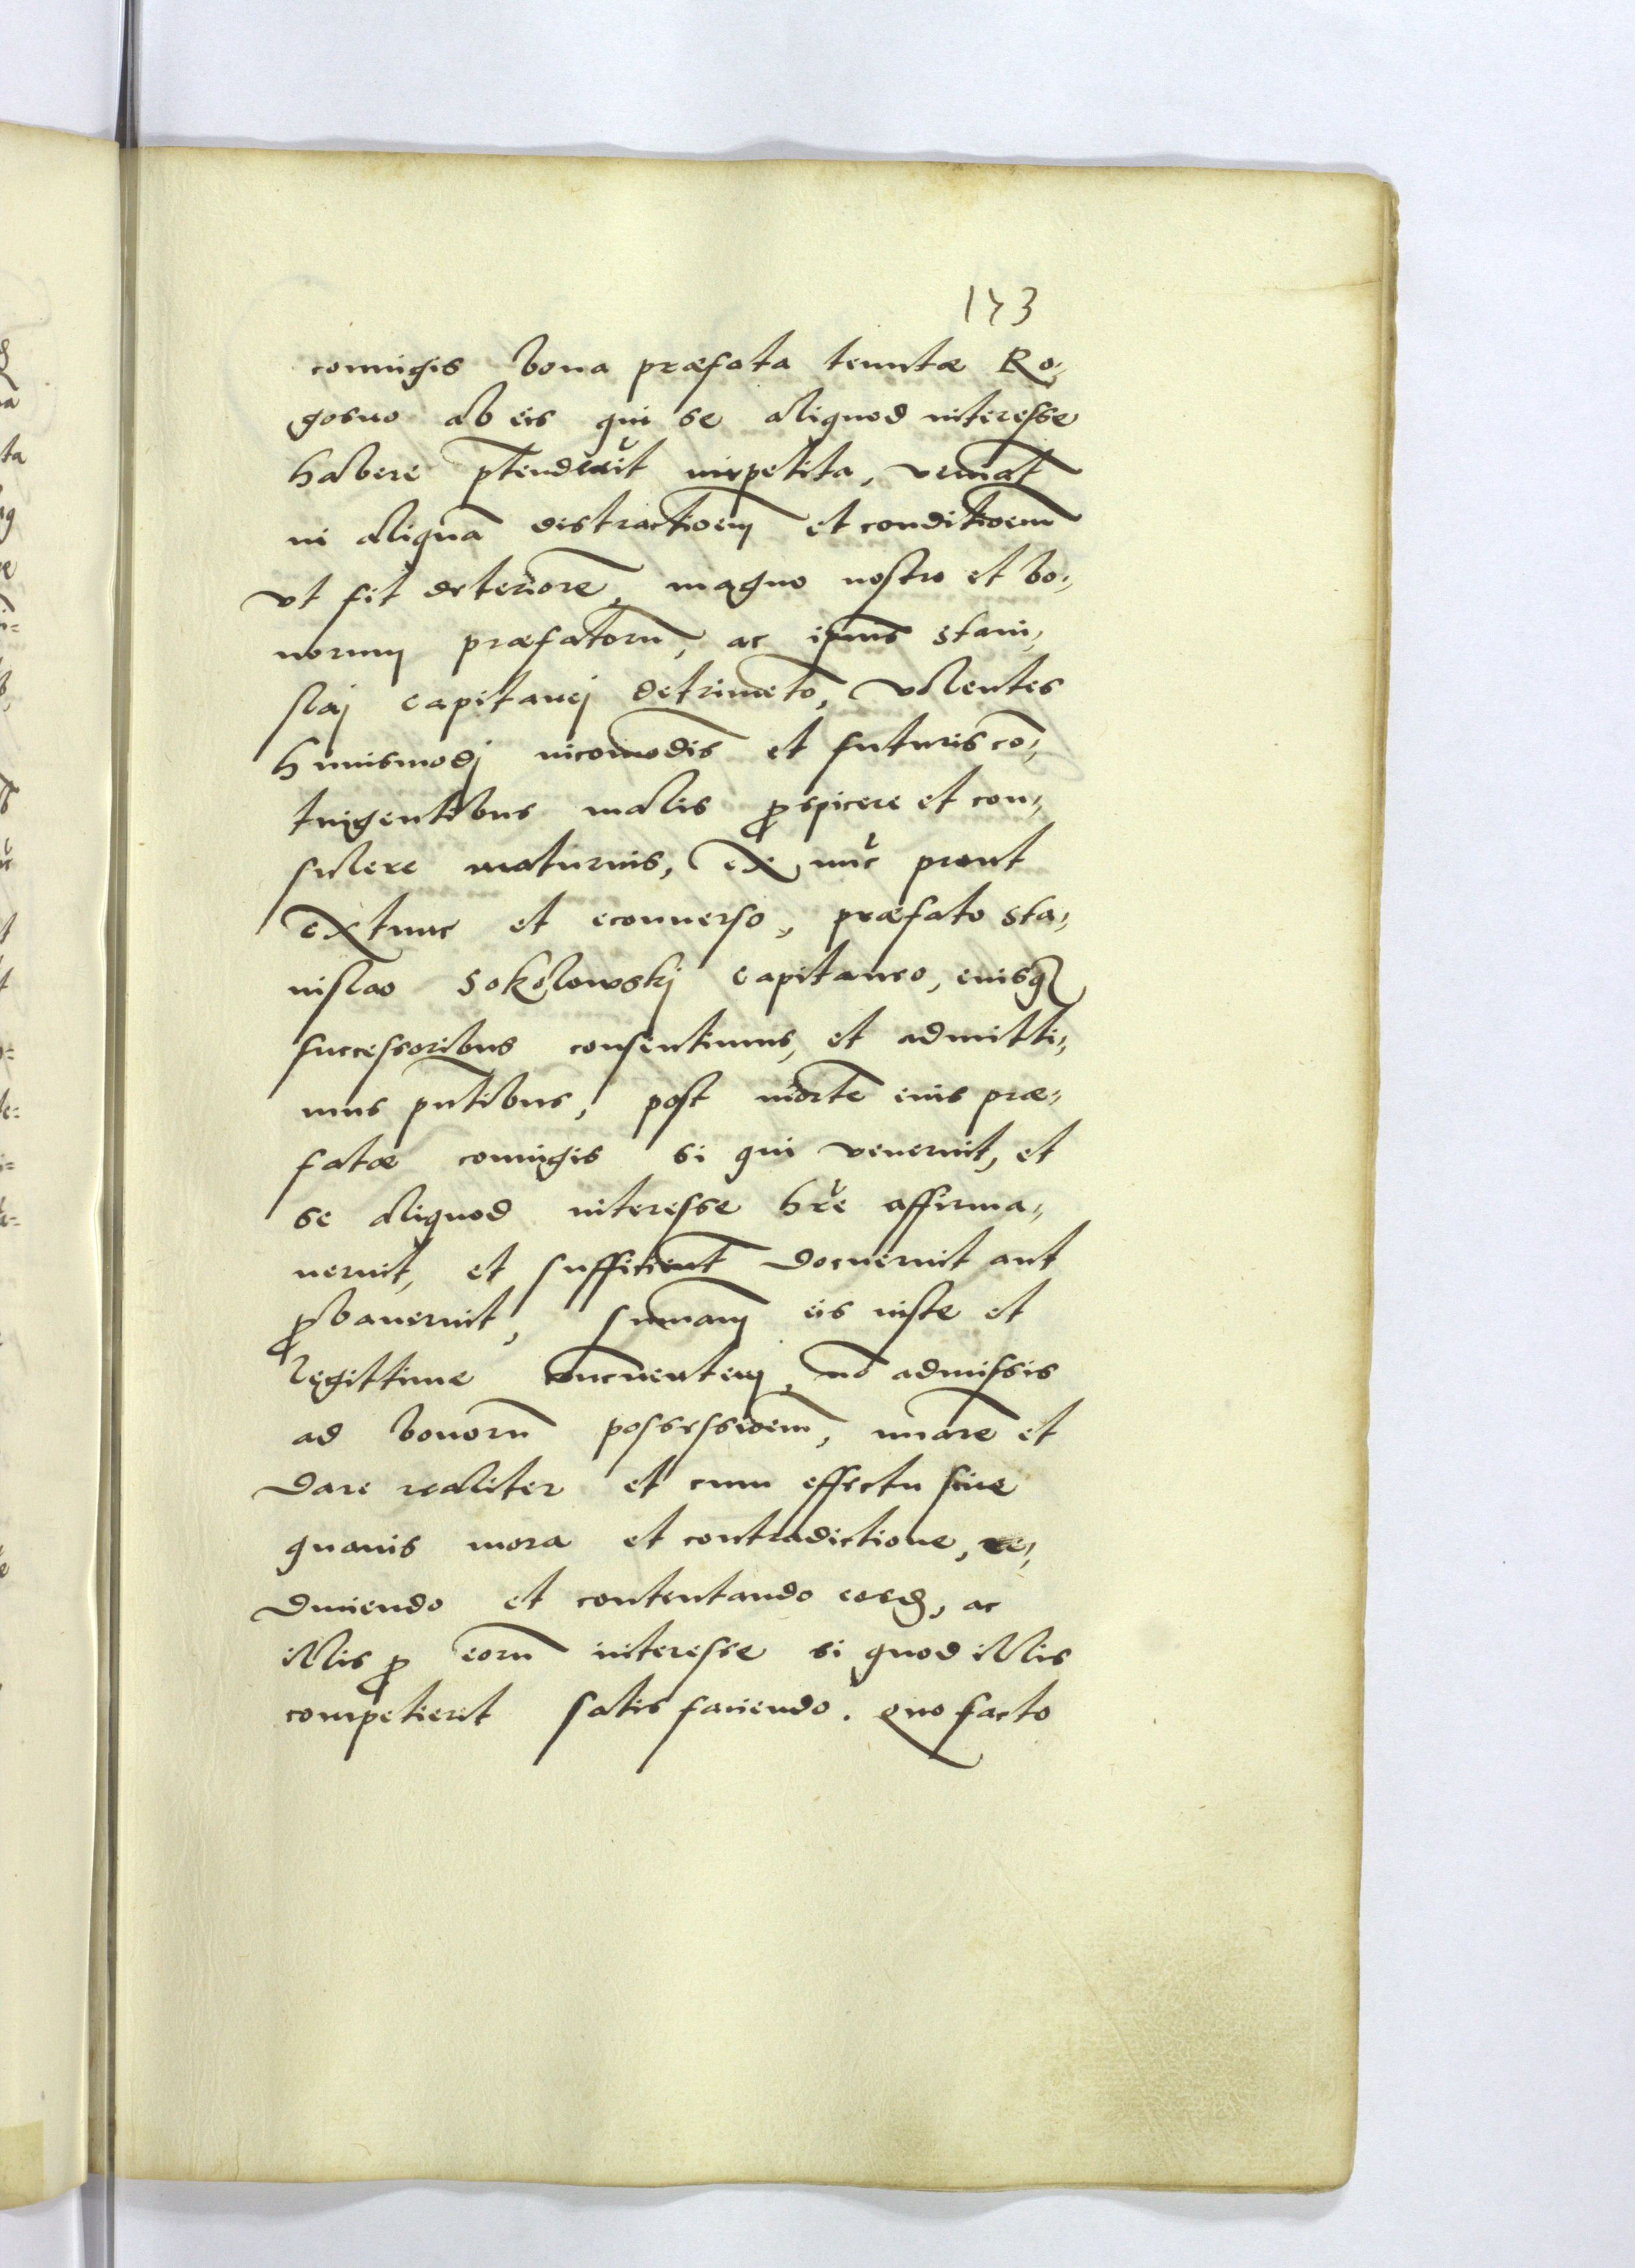 173
coniugis bona præfata tenutæ Ro-
gosno ab eis qui se aliquod interesse
habere ptenderūt impetita, veniāt
in aliquā distractioem et conditioem
ut fit deteriorē, magno nostro et bo-
norum præfatorū, ac ipius Stani-
slaj capitanej detrimēto, Volentes
huiusmodj incōmodis et futuris cō-
tingentibus malis prospicere et con-
sulere maturius, Ex nūc prout
Extunc et econuerso, præfato Sta-
nislao Sokolowskj Capitaneo, eiusq
successoribus consentimus, et admitti-
mus pntibus, post mortē eius præ-
fatæ coniugis si qui venerint, et
se aliquod interesse hrē affirma-
uerint, et sufficient docuerint aut
probauerint, Sum̄am eis iuste et
legittime conuenientem, nō admissis
ad bonorū possessioem, nūare et
dare realiter et cum effectu sine
quauis mora et contradictione, re-
dimendo et contentando eosd, ac
illis pro eorū interesse si quod illis
competierit satis faciendo. Quo facto